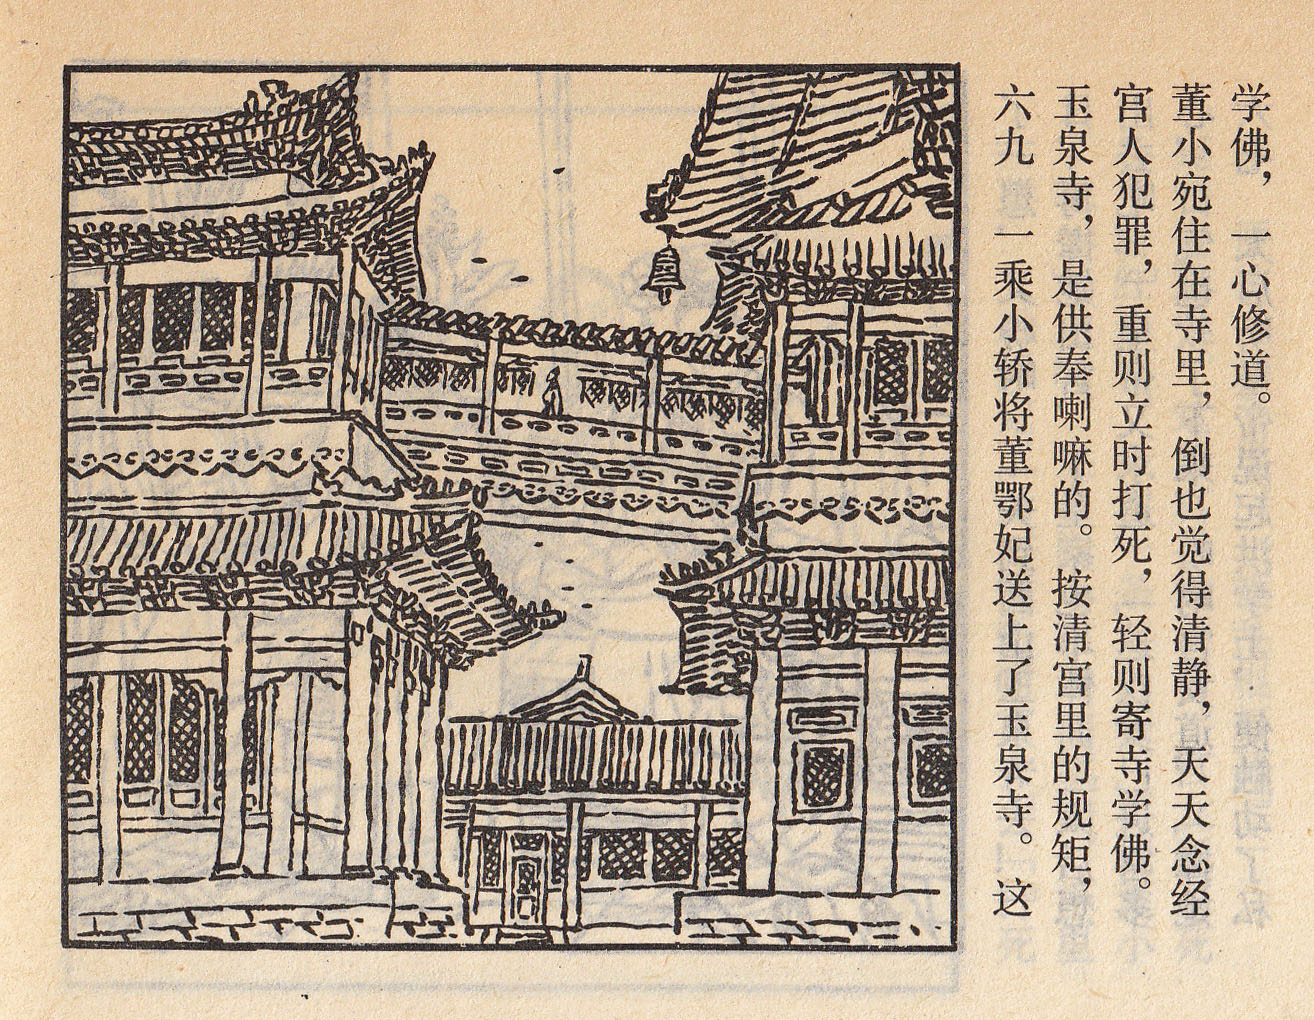 六九 一乘小轿将董鄂妃送上了玉泉寺。这
玉泉寺，是供奉喇嘛的。按清宫里的规矩，
宫人犯罪，重则立时打死，轻则寄寺学佛。
董小宛住在寺里，倒也觉得清静，天天念经
学佛，一心修道。